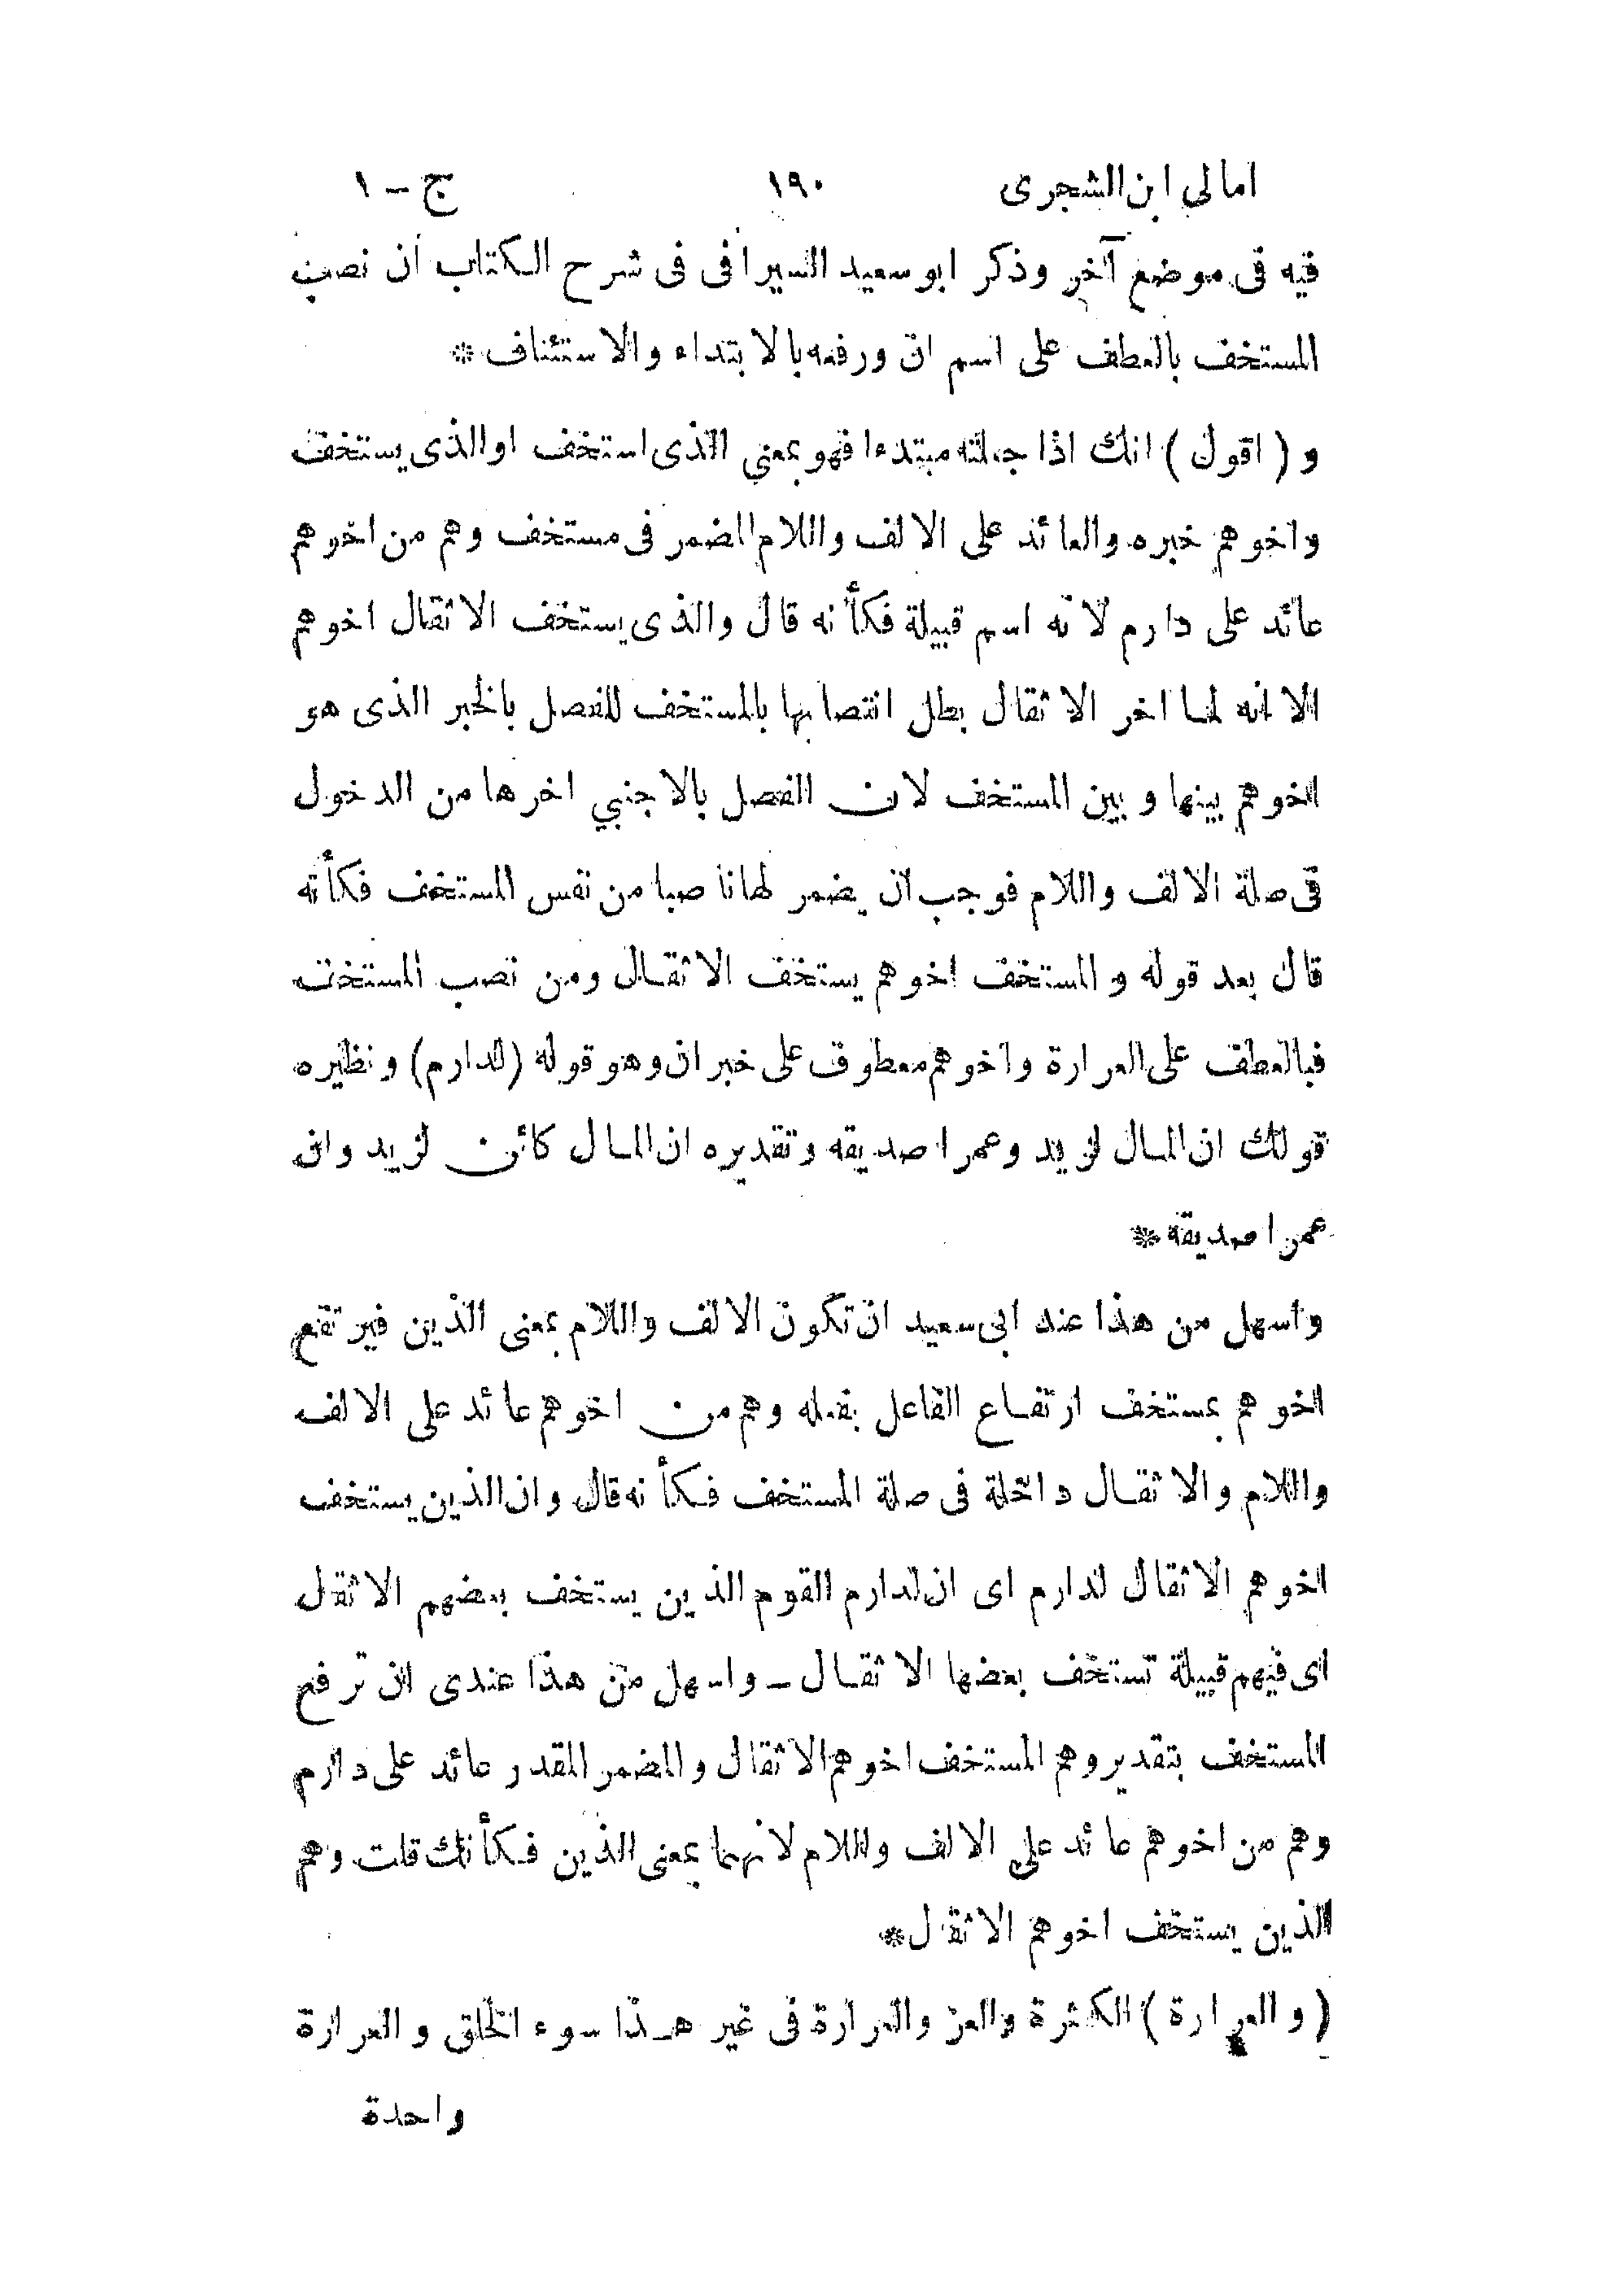 امالى ابن الشجرى ١٩٠ ج – ١
فيه فى موضع آخر وذكر ابو سعيد السيرافى فى شرح الكتاب ان نصب
المستخف بالعطف على اسم ان ورفعه بالابتداء والاستئناف *
و ( اقول ) انك اذا جعلته مبتدءا فهو بمعنى الذى استخف او الذى يستخف
واخوهم خبره والعائد على الالف واللام المضمر فى مستخف وهم من اخوهم
عائد على دارم لانه اسم قبيلة فكأنه قال والذى يستخف الاثقال اخوهم
الا انه لما اخر الاثقال بطل انتصابها بالمستخف للفصل بالخبر الذى هو
اخوهم بينها وبين المستخف لان الفصل بالاجنبي اخرها من الدخول
فى صلة الالف واللام فوجب ان يضمر لها ناصبا من نفس المستخف فكأنه
قال بعد قوله والمستخف اخوهم يستخف الاثقال ومن نصب المستخف
فبالعطف على العرارة واخوهم معطوف على خبر ان وهو قوله (لدارم) ونظيره
قولك ان المال لزيد وعمرا صديقه وتقديره ان المال كائن لزيد وان
عمرا صديقه *
واسهل من هذا عند ابى سعيد ان تكون الالف واللام بمعنى الذين فيرتفع
اخوهم بمستخف ارتفاع الفاعل بفعله وهم من اخوهم عائد على الالف
واللام والاثقال داخلة فى صلة المستخف فكأنه قال وان الذين يستخف
اخوهم الاثقال لدارم اى ان لدارم القوم الذين يستخف بعضهم الاثقل
اى فيهم قبيلة تستخف بعضها الاثقال – واسهل من هذا عندى ان ترفع
المستخف بتقدير وهم المستخف اخوهم الاثقال والمضمر المقدر عائد على دارم
وهم من اخوهم عائد على الالف واللام لانهما بمعنى الذين فكأنك قلت وهم
الذين يستخف اخوهم الاثقال *
( والعرارة ) الكثرة والعز والعرارة فى غير هذا سوء الخلق والعرارة
واحدة